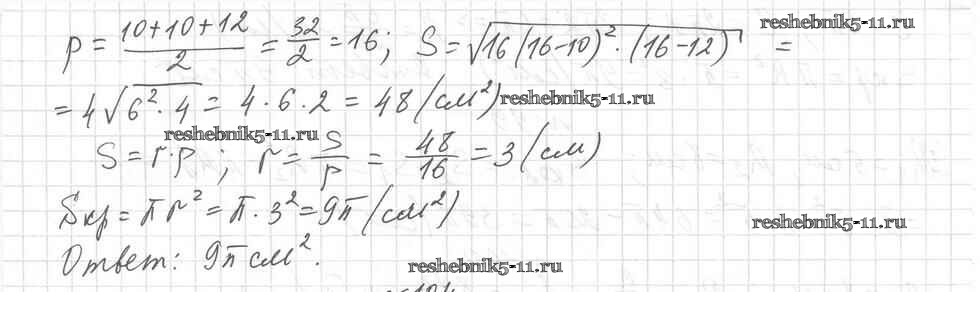 reshebnik5-11.ru
p = (10+10+12)/2 = 32/2 = 16; S = √(16(16-10)²·(16-12)) =
= 4√(6²·4) = 4·6·2 = 48 (см²) reshebnik5-11.ru
reshebnik5-11.ru
S = r·p; r = S/p = 48/16 = 3 (см)
Sкр = πr² = π·3² = 9π (см²)
reshebnik5-11.ru
Ответ: 9π см².
reshebnik5-11.ru